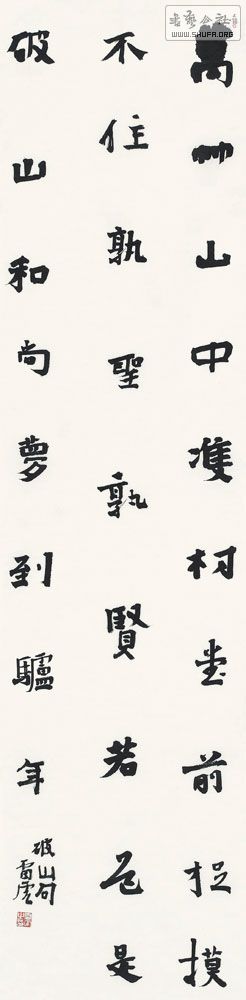 書藝公社
WWW.SHUFA.ORG
萬山中堂前捉摸
不住孰聖孰賢若是
破山和尚夢到驢年
破山句